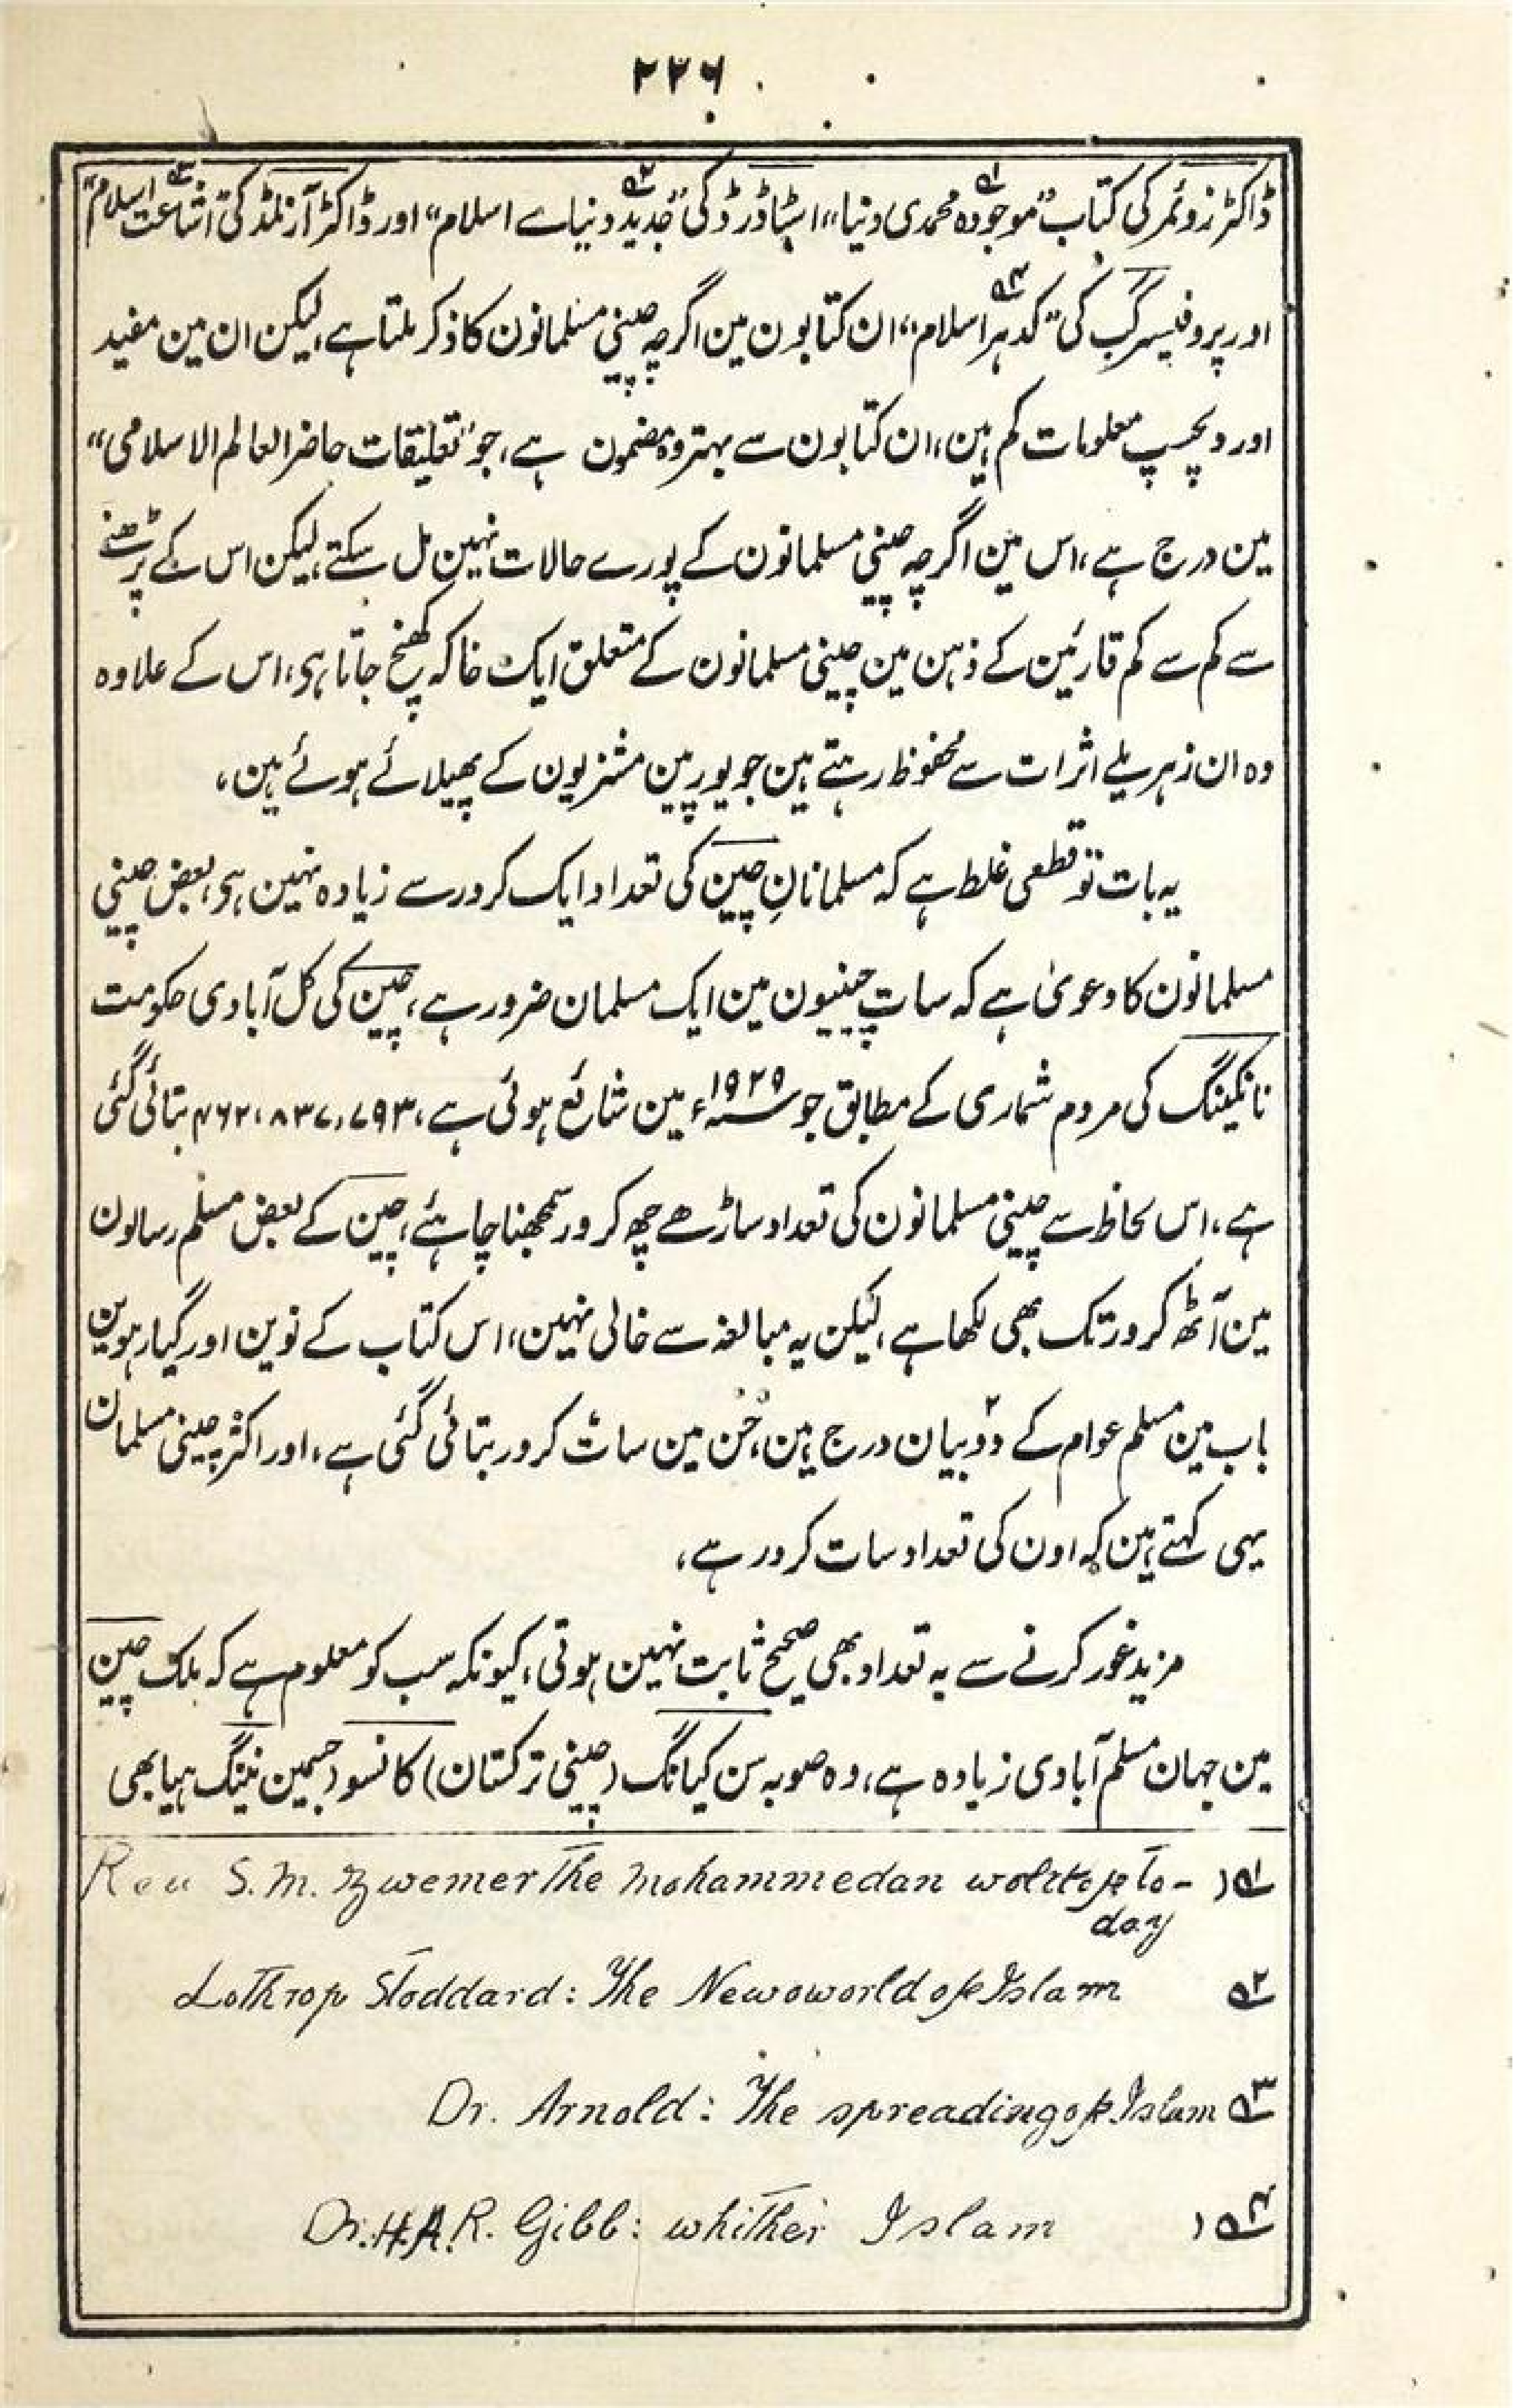 ۲۲۶
ڈاکٹر زوئمر کی کتاب "موجودہ محمدی دنیا"، اسٹاڈرڈ کی "جدید دنیاے اسلام" اور ڈاکٹر آرنلڈ کی "اشاعت اسلام"
اور پروفیسر گب کی "کدہر اسلام"، ان کتابون مین اگرچہ چینی مسلمانون کا ذکر ملتا ہے، لیکن ان مین مفید
اور دلچسپ معلومات کم ہین، ان کتابون سے بہتر وہ مضمون ہے، جو "تعلیقات حاضر العالم الاسلامی"
مین درج ہے، اس مین اگرچہ چینی مسلمانون کے پورے حالات نہین مل سکتے، لیکن اس کے پڑھنے
سے کم سے کم قارئین کے ذہن مین چینی مسلمانون کے متعلق ایک خاکہ کھنچ جاتا ہی، اس کے علاوہ
وہ ان زہریلے اثرات سے محفوظ رہتے ہین جو یورپین مشنریون کے پھیلائے ہوئے ہین،
یہ بات تو قطعی غلط ہے کہ مسلمانانِ چین کی تعداد ایک کرور سے زیادہ نہین ہی، بعض چینی
مسلمانون کا دعویٰ ہے کہ سات چینیون مین ایک مسلمان ضرور ہے، چین کی کل آبادی حکومت
نانکینگ کی مردم شماری کے مطابق جو ۱۹۲۹ء مین شائع ہوئی ہے، ۴۶۲،۸۳۷،۷۹۳ بتائی گئی
ہے، اس لحاظ سے چینی مسلمانون کی تعداد ساڑھے چھ کرور سمجھنا چاہئے، چین کے بعض مسلم رسالون
مین آٹھ کرور تک بھی لکھا ہے، لیکن یہ مبالغہ سے خالی نہین، اس کتاب کے نوین اور گیارہوین
باب مین مسلم عوام کے دو۲ بیان درج ہین، جن مین سات کرور بتائی گئی ہے، اور اکثر چینی مسلمان
یہی کہتے ہین کہ اون کی تعداد سات کرور ہے،
مزید غور کرنے سے یہ تعداد بھی صحیح ثابت نہین ہوتی، کیونکہ سب کو معلوم ہے کہ ملک چین
مین جہان مسلم آبادی زیادہ ہے، وہ صوبہ سن کیانگ (چینی ترکستان) کانسو (جسمین نینگ ہیا بھی
۱؎ Rev S. M. Zwemer The Mohammedan world of To-
day
۲؎ Lothrop Stoddard: The New world of Islam
۳؎ Dr. Arnold: The spreading of Islam
۴؎ Dr. H.A.R. Gibb: whither Islam